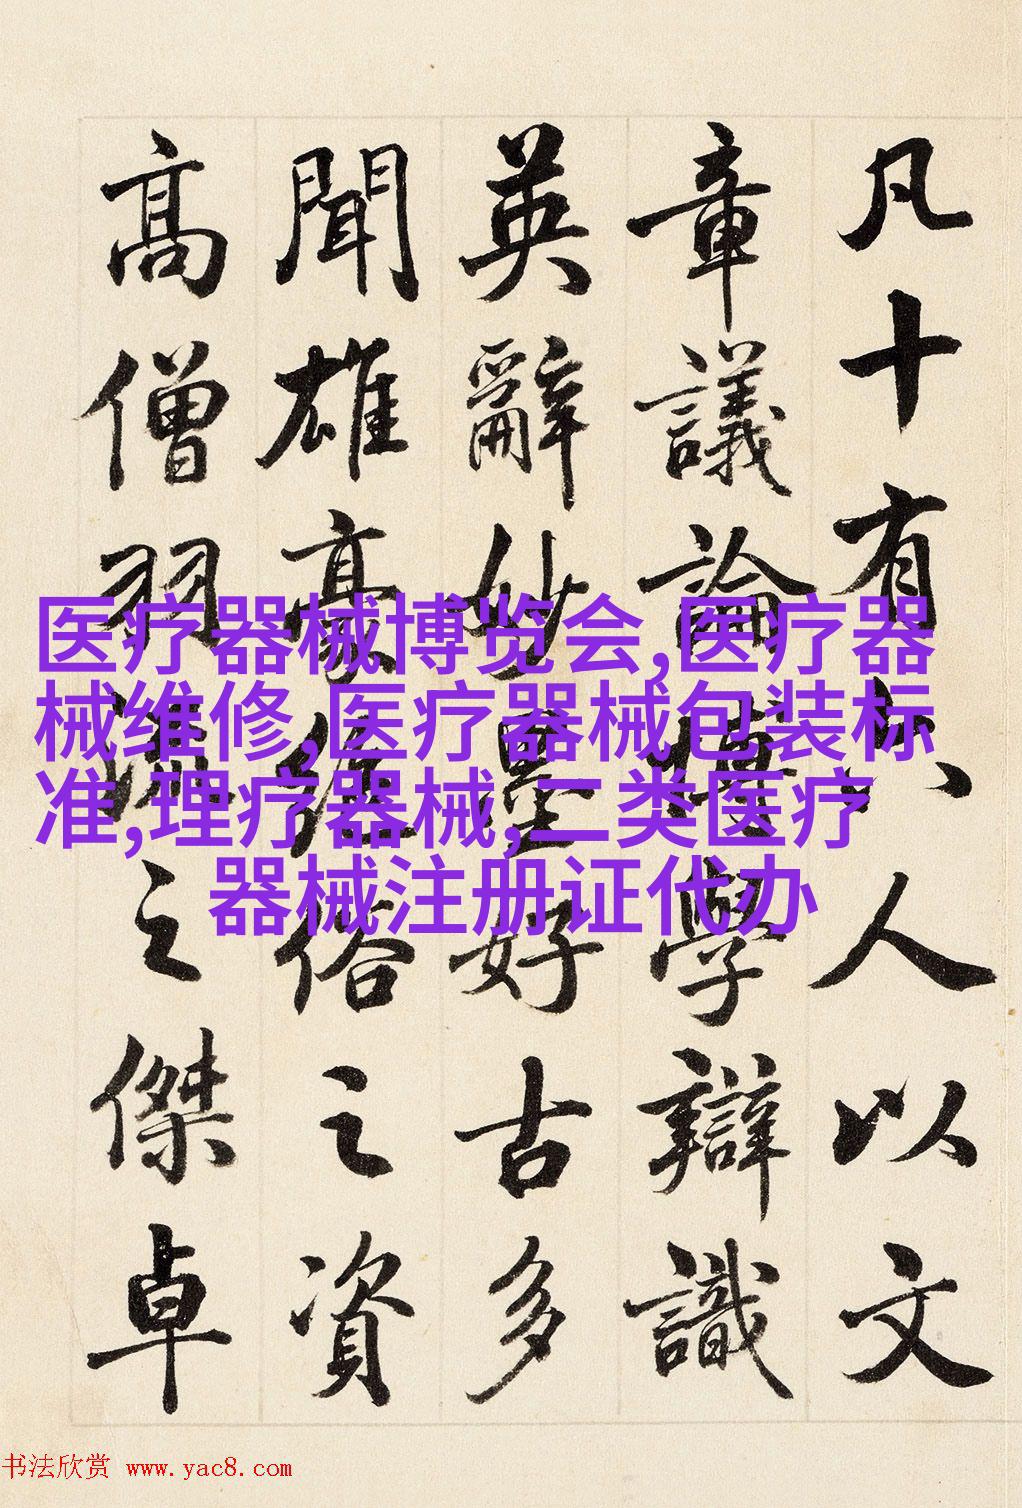 凡十有六人以文
章議論博學辯識
英辭妙墨好古多
聞雄豪絕俗之資
高僧羽流之傑卓
医疗器械博览会,医疗器
械维修,医疗器械包装标
准,理疗器械,二类医疗
器械注册证代办
书法欣赏 www.yac8.com